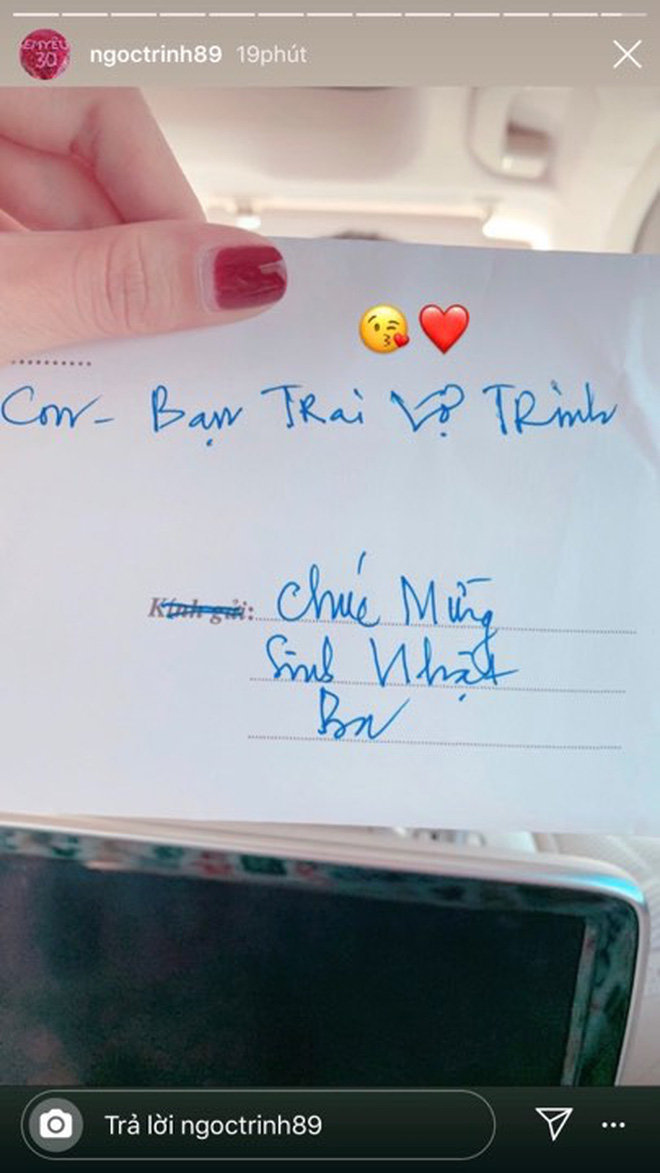 EMYÊU
30
ngoctrinh89 19phút
Con - Bạn TRai Vợ TRinh
Kính gửi:
Chúc Mừng
Sinh Nhật
Ba
Trả lời ngoctrinh89